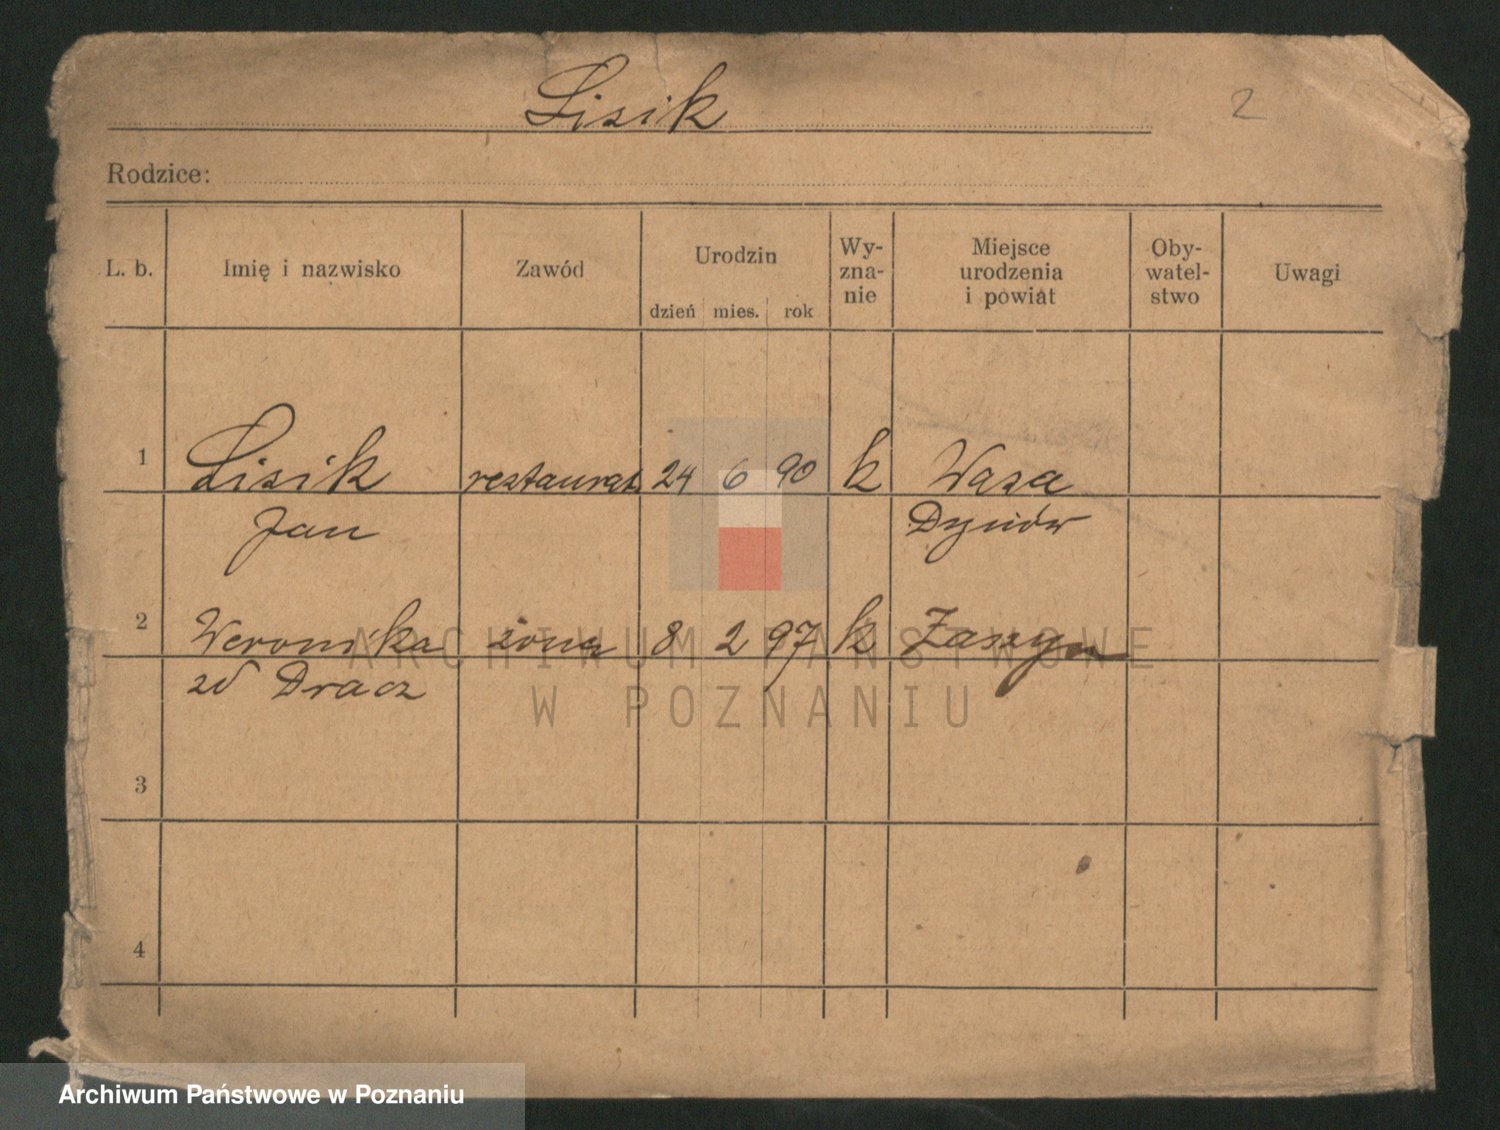 Lisik
2
Rodzice:
L. b.
Imię i nazwisko
Zawód
Urodzin
dzień mies. rok
Wy-
zna-
nie
Miejsce
urodzenia
i powiat
Oby-
watel-
stwo
Uwagi
1 Lisik restaurat. 24 6 90 k Wasa
Jan Dynów
2 Weronika żona 8 2 97 k Zaszyn
zd Dracz
3
4
ARCHIWUM PAŃSTWOWE
W POZNANIU
Archiwum Państwowe w Poznaniu